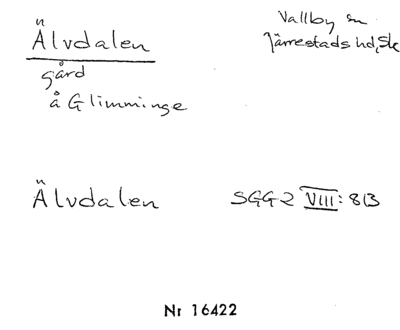 Älvdalen
Vallby sn
Järrestads hd, Sk
gård
å Glimminge
Älvdalen
SGG2 VIII:8B
Nr 16422